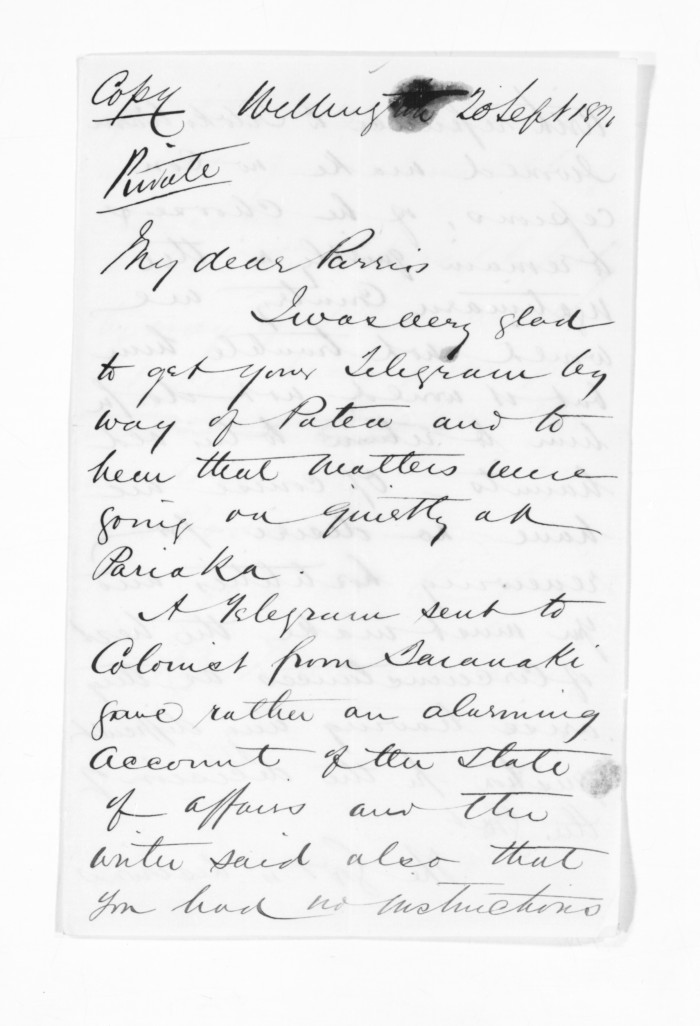 Copy Wellington 20 Sept 1870
Private
My dear Parris
I was very glad
to get your Telegram by
way of Patea and to
hear that matters were
going on quietly at
Pariaka.
A Telegram sent to
Colonist from Taranaki
gave rather an alarming
account of the state
of affairs and the
writer said also that
you had no instructions